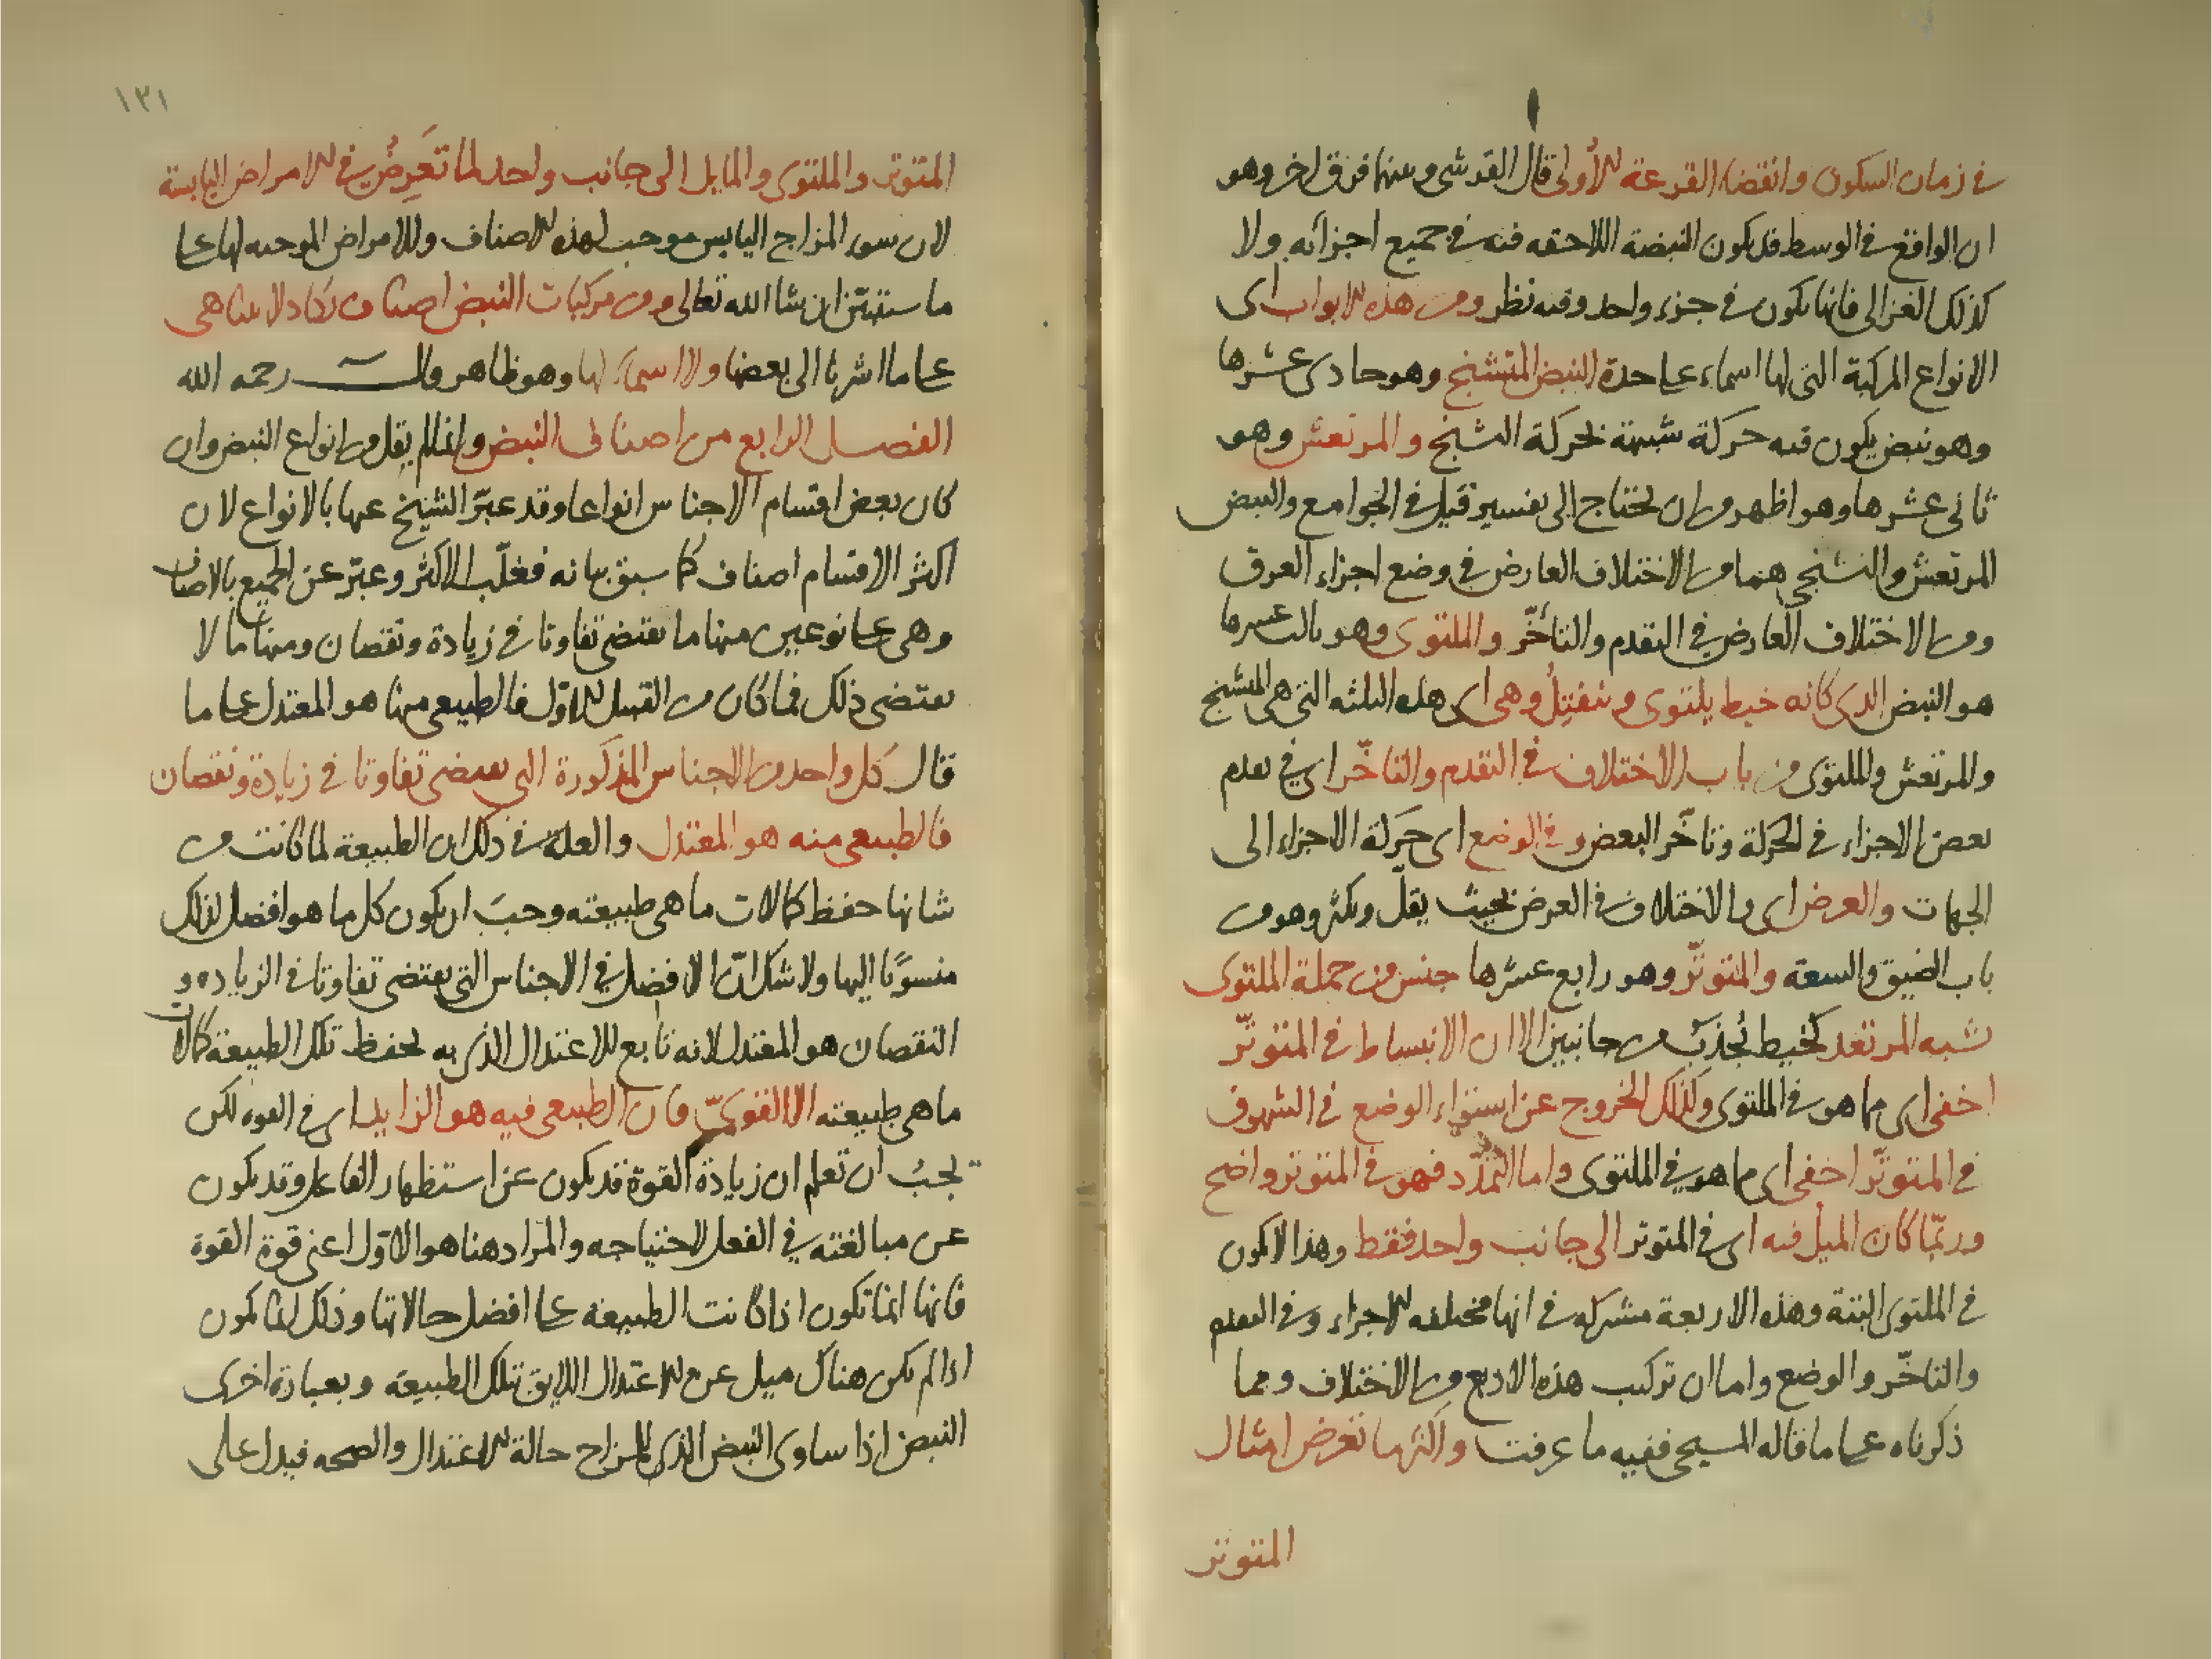 في زمان السكون وانقضاء القرعة الأولى قال القرشي وبينهما فرق اخر وهو
ان الواقع في الوسط قد يكون النبضة اللاحقه فيه في جميع اجزائه ولا
كذلك الغزالي فانها تكون في جزء واحد وفيه نظر ومن هذه الابواب اى
الانواع المركبة التي لها اسماء على حدة النبض المتشنج وهو حادى عشرها
وهو نبض يكون فيه حركة شبيهة بحركة التشنج والمرتعش وهو
ثانى عشرها وهو اظهر من ان يحتاج الى تفسير قيل في الجوامع والنبض
المرتعش والتشنجي هما من الاختلاف العارض في وضع اجزاء العرق
ومن الاختلاف العارض في التقدم والتأخّر والملتوى وهو ثالث عشرها
هو النبض الذى كانه خيط يلتوى وينفتل وهى اى هذه الثلثه التى هى المتشنج
والمرتعش والملتوى من باب الاختلاف في التقدم والتاخّر اى في تقدم
بعض الاجزاء في الحركة وتاخّر البعض وفي الوضع اى حركة الاجزاء الى
الجهات والعرض اى من الاختلاف في العرض بحيث يقلّ ويكثر وهو من
باب الضيق والسعة والمتوتّر وهو رابع عشرها جنس من جملة الملتوى
شبه المرتعد كخيط يُجذب من جانبين الا ان الانبساط في المتوتّر
اخفى اى مما هو في الملتوى وكذلك الخروج عن استواء الوضع في الشهوق
في المتوتّر اخفى اى مما هو في الملتوى واما التمدّد فهو في المتوتر واضح
وربّما كان الميل فيه اى في المتوتر الى جانب واحد فقط وهذا لا يكون
في الملتوى البتة وهذه الاربعة مشتركه في انها مختلفه الاجزاء وفي التقدم
والتاخّر والوضع واما ان تركيب هذه الاربع من الاختلاف ومما
ذكرناه على ما قاله المسيحى ففيه ما عرفت واكثر ما تعرض امثال
المتوتر
١٣١
المتوتر والملتوى والمايل الى جانب واحد لما تَعرِضُ في الامراض اليابسة
لان سوء المزاج اليابس موجب لهذه الاصناف وللامراض الموجبه لها على
ما ستبين ان شا الله تعالى ومن مركبات النبض اصناف تكاد لا تتناهى
على ما اشرنا الى بعضها ولا اسماء لها وهو ظاهر قال رحمه الله
الفصل الرابع من اصناف النبض وانما لم يقل من انواع النبض وان
كان بعض اقسام الاجناس انواعا وقد عبّر الشيخ عنها بالانواع لان
اكثر الاقسام اصناف كما سبق بيانه فغلّب الاكثر وعبّر عن الجميع بالاصناف
وهى على نوعين منها ما يقتضى تفاوتا في زيادة ونقصان ومنها ما لا
يقتضى ذلك فما كان من القبيل الاوّل فالطبيعى منها هو المعتدل على ما
قال كل واحد من الاجناس المذكورة التى تقتضى تفاوتا في زيادة ونقصان
فالطبيعى منه هو المعتدل والعلة في ذلك ان الطبيعة لما كانت من
شانها حفظ كمالات ما هى طبيعته وجبَ ان يكون كل ما هو افضل لذلك
منسوبًا اليها ولا شك انّ الافضل في الاجناس التى يقتضى تفاوتا في الزياده و
النقصان هو المعتدل لانه تابع للاعتدال الذى به تحفظ تلك الطبيعة كمالات
ما هى طبيعته الا القوىّ فان الطبيعى فيه هو الزايد اى في القوه لكن
يجبُ ان تعلم ان زيادة القوة قد يكون عن استظهار الفاعل وقد يكون
عن مبالغته في الفعل لاحتياجه والمراد هنا هو الاوّل اعنى قوة القوة
فانها انما تكون اذا كانت الطبيعة على افضل حالاتها وذلك انما يكون
اذا لم يكن هناك ميل عن الاعتدال اللايق بتلك الطبيعة وبعبارة اخرى
النبض اذا ساوى النبض الذى للمزاج حالة الاعتدال والصحه فيدل على